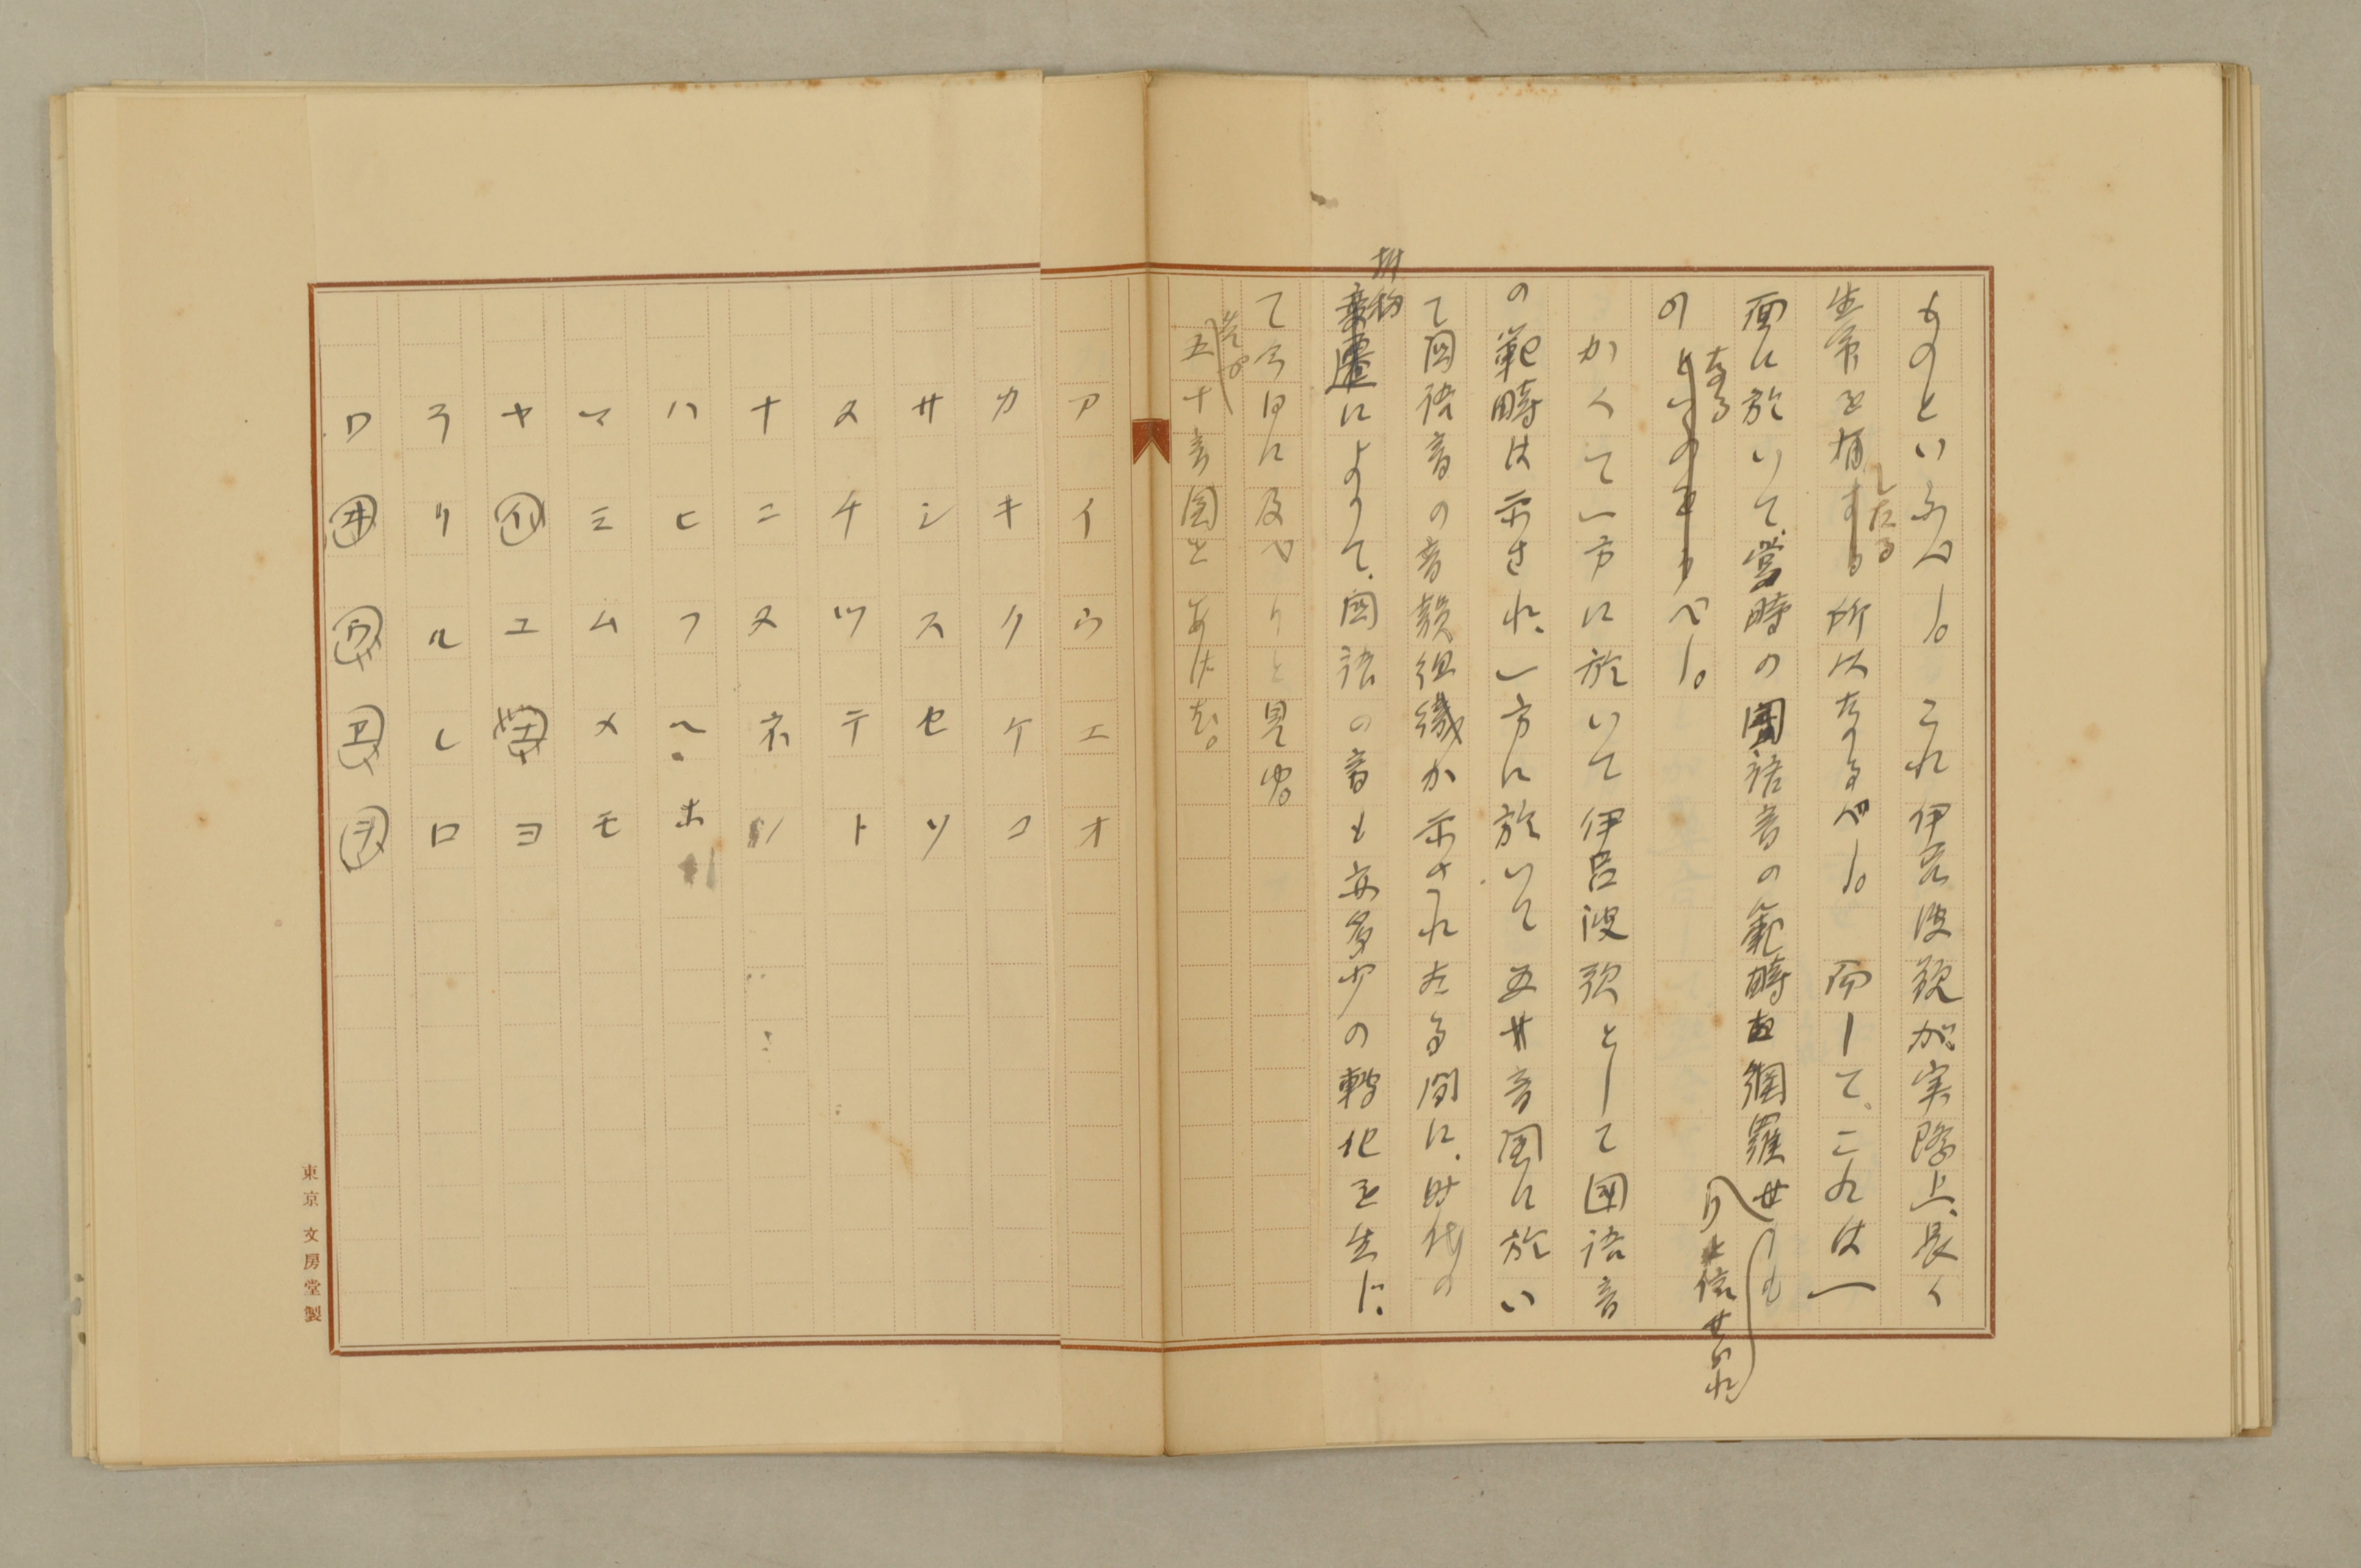 ものといふべし。これ伊呂波歌が、実際上、長く
生命を有したる所以なるべし。而して、これは一
面に於いて、当時の国語音の範疇を網羅せるも
のなり
と信ぜられ
かくて一方に於いて伊呂波歌として国語音
の範疇は示され、一方に於いて五十音図に於い
て国語音の音韻組織が示されたる間に、時代の
推移によりて、国語の音も亦多少の転化を生じ、
て今日に及べりと見ゆ。
五十音図をあげむ。
アイウエオ
カキクケコ
サシスセソ
タチツテト
ナニヌネノ
ハヒフヘホ
マミムメモ
ヤイユエヨ
ラリルレロ
ワヰウヱヲ
東京 文房堂製